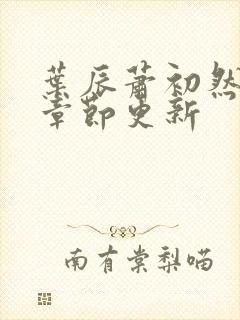 葉辰蕭初然
章節更新
南有棠梨喵